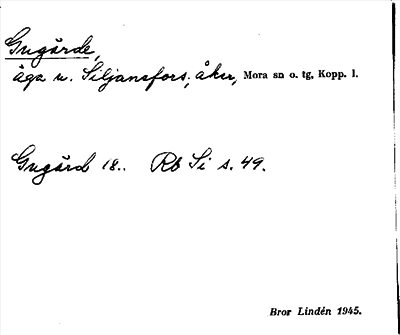 Gugärde,
äga u. Siljansfors; åker, Mora sn o. tg, Kopp. l.
Gugärd 18.. Rb Si s. 49.
Bror Lindén 1945.